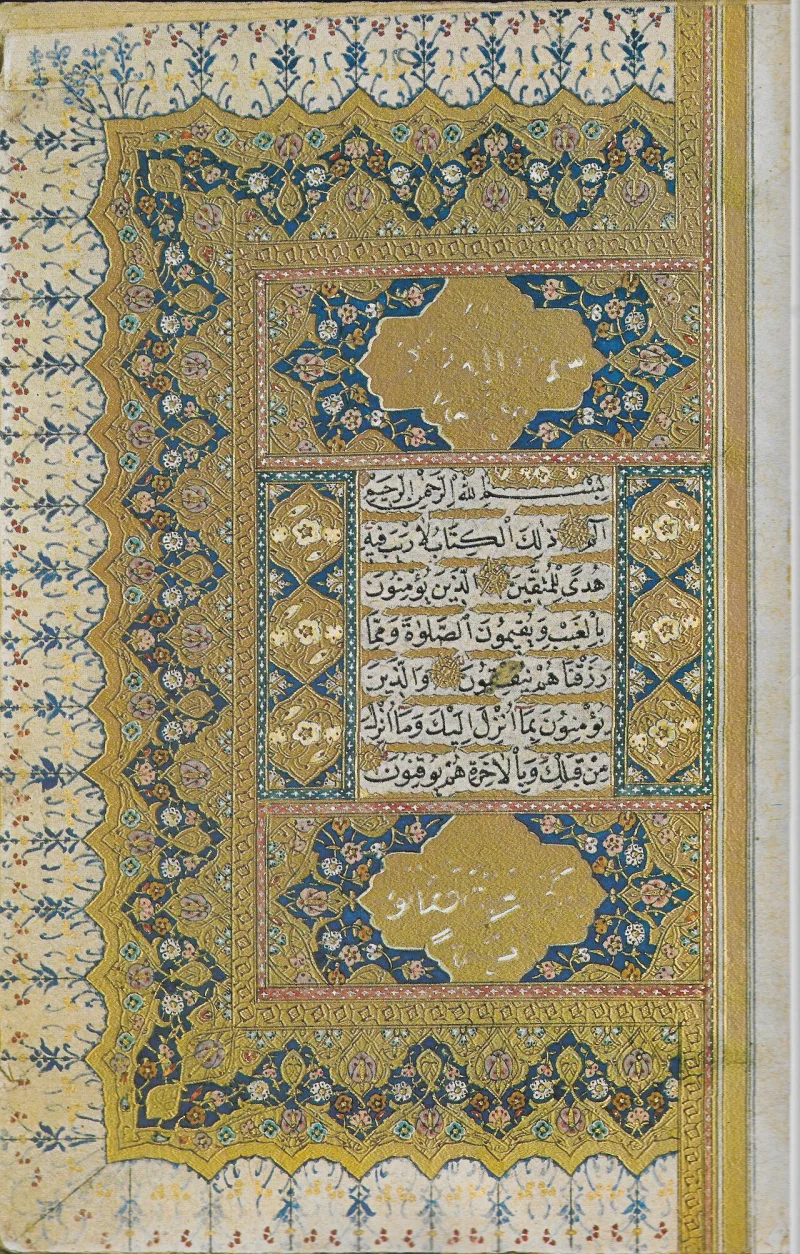 بِسْمِ اللهِ الرَّحْمٰنِ الرَّحِيمِ
الٓمٓ ذٰلِكَ الْكِتَابُ لَا رَيْبَ فِيهِ
هُدًى لِلْمُتَّقِينَ الَّذِينَ يُؤْمِنُونَ
بِالْغَيْبِ وَيُقِيمُونَ الصَّلٰوةَ وَمِمَّا
رَزَقْنَاهُمْ يُنْفِقُونَ وَالَّذِينَ
يُؤْمِنُونَ بِمَا اُنْزِلَ اِلَيْكَ وَمَا اُنْزِلَ
مِنْ قَبْلِكَ وَبِالْاٰخِرَةِ هُمْ يُوقِنُونَ